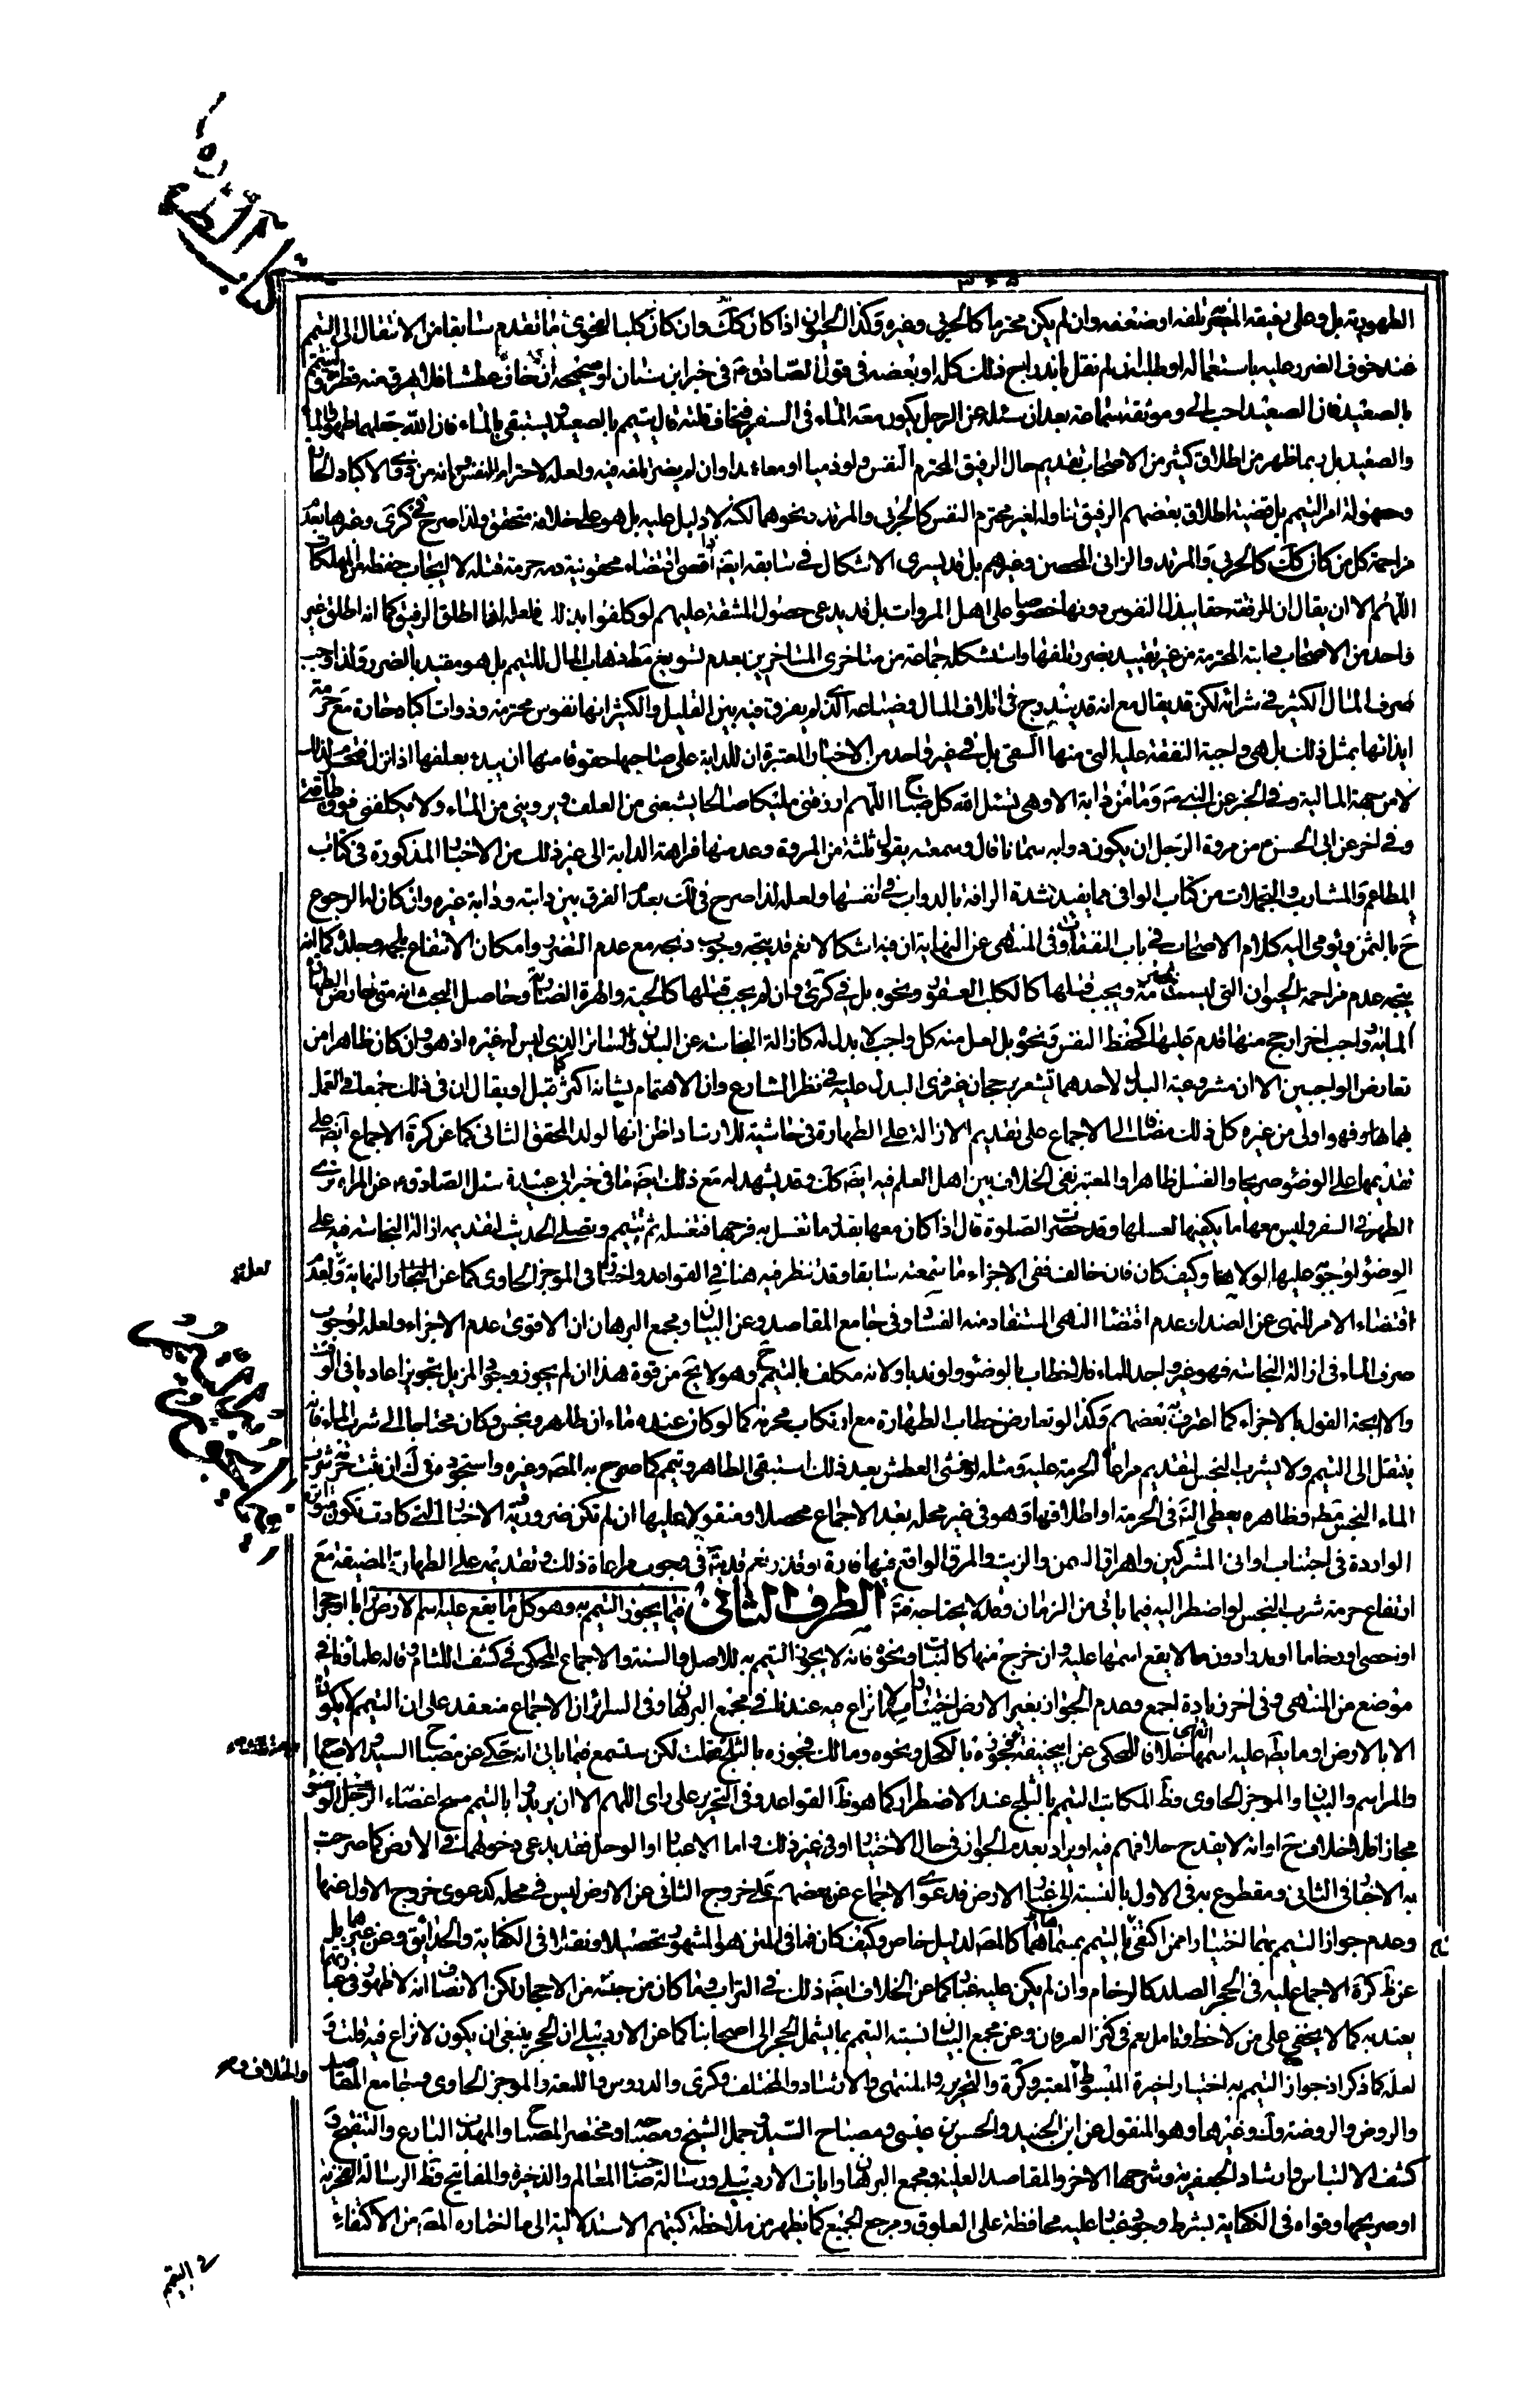 كتاب الطهارة
٣٦٥
الطهورية بل وعلى رفيقه المضر تلفه او ضعفه وان لم يكن محترما كالحربي وغيره وكذا الحيوان اذا كان كك وان كان كلبا لفحوى ما تقدم سابقا من الانتقال الى التيمم
عند خوف الضرر عليه باستعماله او طلبه ان لم نقل باندراج ذلك كله او بعضه في قول الصادق ع في خبر ابن سنان او صحيحه ان خاف عطشا فلا يهرق منه قطرة وليتيمم
بالصعيد فان الصعيد احب الي وموثقة سماعة بعد ان سئله عن الرجل يكون معه الماء في السفر فيخاف قلته قال يتيمم بالصعيد ويستبقي الماء فان الله جعلهما طهورا الماء
والصعيد بل ربما ظهر من اطلاق كثير من الاصحاب تقديم حال الرفيق المحترم النفس ولو ذميا او معاهدا وان لم يضر تلفه فيه ولعله لاحترام النفس وانه من ذوي الاكباد الحارة
وسهولة امر التيمم بل قضية اطلاق بعضهم الرفيق تناوله لغير محترم النفس كالحربي والمرتد ونحوهما لكنه لا دليل عليه بل هو على خلافه متحقق ولذا صرح في كرى وغيرها بعد
مزاحمة كل من كان كك كالحربي والمرتد والزاني المحصن وغيرهم بل قد يسرى الاشكال في سابقه ايضا اذ اقصى اقتضاء محقونية دمه حرمة قتله لا ايجاب حفظه من المهلكات
اللهم الا ان يقال ان للرفقة حقا يبذل النفوس دونها خصوصا على اهل المروات بل قد يدعى حصول المشقة عليهم لو كلفوا بذلك فلعله لهذا اطلق الرفيق كما انه اطلق غير
واحد من الاصحاب دابته المحترمة من غير تقييد بضرر تلفها واستشكله جماعة من متاخري المتاخرين بعدم تسويغ مطلق ذهاب المال للتيمم بل هو مقيد بالضرر ولذا وجب
صرف المال الكثير في شرائه لكن قد يقال مع انه قد يندرج في اتلاف المال وضياعه الذي لم يفرق فيه بين القليل والكثير انها نفوس محترمة وذوات اكباد حارة مع حرمة
ايذائها بمثل ذلك بل هي واجبة النفقة عليه التي منها السقي بل في غير واحد من الاخبار المعتبرة ان للدابة على صاحبها حقوقا منها ان يبدء بعلفها اذا نزل فتحترم لذلك
لا من جهة المالية وفي الخبر عن النبي ص وما من دابة الا وهي تسئل الله كل صباح اللهم ارزقني مليكا صالحا يشبعني من العلف ويرويني من الماء ولا يكلفني فوق طاقتي
وفي اخر عن ابي الحسن ع من مروة الرجل ان يكون دوابه سمانا قال وسمعته يقول ثلثة من المروة وعد منها فراهة الدابة الى غير ذلك من الاخبار المذكورة في كتاب
المطاعم والمشارب والتجملات من كتاب الوافي مما يفيد شدة الرافة بالدواب في انفسها ولعله لذا صرح في لك بعدم الفرق بين دابته ودابة غيره وان كان له الرجوع
ح بالثمن ويومي اليه كلام الاصحاب في باب النفقات وفي المنتهى عن النهاية ان فيه اشكالا نعم قد يتجه وجوب ذبحه مع عدم التضرر وامكان الانتفاع بلحمه وجلده كما انه
يتجه عدم مزاحمة الحيوان التي ليست بمحترمة ويجب قتلها كالكلب العقور ونحوه بل في كرى وان لم يجب قتلها كالحية والهرة الضارية وحاصل البحث انه متى عارض الطهارة
المائية واجب اخر ارجح منها قدم عليها كحفظ النفس ونحوه بل لعل منه كل واجب لا بدل له كازالة النجاسة عن البدن والساتر الذي ليس له غيره اذ هو وان كان ظاهرا من
تعارض الواجبين الا ان مشروعية البدل لاحدهما تشعر برجحان غير ذي البدل عليه في نظر الشارع وان الاهتمام بشانه اكثر كما قيل او يقال ان في ذلك جمعا في العمل
بهما هو فهو اولى من غيره كل ذلك مضافا الى الاجماع على تقديم الازالة على الطهارة في حاشية للارشاد اظن انها لولد المحقق الثاني كما عن كرة الاجماع ايضا على
تقديمها على الوضوء صريحا والغسل ظاهرا والمعتبر نفي الخلاف بين اهل العلم فيه ايضا كك وقد يشهد له مع ذلك ايضا ما في خبر ابي عبيدة سئل الصادق ع عن المراة ترى
الطهر في السفر وليس معها ما يكفيها لغسلها وقد حضرت الصلوة قال اذا كان معها بقدر ما تغسل به فرجها فتغسل ثم تتيمم وتصلي الحديث لتقديمه ازالة النجاسة فيه على
الوضوء لوجوبه عليها لولاها وكيف كان فان خالف ففي الاجزاء ما سمعته سابقا وقد نظر فيه هنا في القواعد واختار في الموجز الحاوي كما عن المجمع والنهاية ولعله
اقتضاء الامر النهي عن الضد او عدم اقتضاء النهي المستفاد منه الفساد وفي جامع المقاصد وعن البيان ومجمع البرهان ان الاقوى عدم الاجزاء ولعله لوجوب
صرف الماء في ازالة النجاسة فهو غير واجد للماء فلا خطاب بالوضوء ولو ندبا ولانه مكلف بالتيمم ح وهو لا يخ من قوة هذا ان لم يجوز وجود المزيل بتجويزا عاديا في الوقت
والا اتجه القول بالاجزاء كما اعترف به بعضهم وكذا لو تعارض خطاب الطهارة مع ارتكاب محرم كما لو كان عنده ماءان طاهر ونجس وكان محتاجا الى شرب الماء فانه
ينتقل الى التيمم ولا يشرب النجس لتقديم مراعاة الحرمة عليه ومثله لو خشي العطش بعد ذلك استبقى الطاهر وتيمم كما صرح به المص وغيره واستجوده في ك ان ثبت حرمة شرب
الماء النجس مطلقا وظاهره يعطي التردد في الحرمة او اطلاقها وهو في غير محله بعد الاجماع محصلا ومنقولا عليها ان لم تكن ضرورية والاخبار التي كادت تكون متواترة
الواردة في اجتناب اواني المشركين واهراق السمن والزيت والمرق الواقع فيها فارة او قذر نعم قد يتردد في وجوب مراعاة ذلك وتقديمه على الطهارة المضيقة مع
ارتفاع حرمة شرب النجس لو اضطر اليه فيما ياتي من الزمان وقد لا يحتاجه فتامل الطرف الثاني فيما يجوز التيمم به وهو كل ما يقع عليه اسم الارض ترابا او حجرا
او حصى او رخاما او مدرا دون ما لا يقع اسمها عليه وان خرج منها كالنبات ونحوه فانه لا يجوز التيمم به للاصل والسنة والاجماع المحكي في كشف اللثام وقاله علماؤنا في
موضع من المنتهى وفي اخر زيادة اجمع وعدم الجواز بغير الارض اختيارا مما لا نزاع فيه عندنا في مجمع البرهان وفي السرائر ان الاجماع منعقد على ان التيمم لا يكون
الا بالارض او ما يطلق عليه اسمها خلافا للمحكي عن ابي حنيفة فجوزه بالكحل ونحوه ومالك فجوزه بالثلج قلت لكن ستسمع فيما ياتي انه حكي عن مصباح السيد والاصباح
والمراسم والبيان والموجز الحاوي وظ المكاتب التيمم بالثلج عند الاضطرار كما هو ظ القواعد وفي التحرير على راى اللهم الا ان يريدوا بالتيمم مسح اعضاء الوضوء
مجازا فلا خلاف ح او انه لا يقدح خلافهم فيه او يراد بعدم الجواز في حال الاختيار او في غير ذلك واما الاغبار او الوحل فقد يدعى دخولهما في الارض كما صرحت
به الاخبار في الثاني ومقطوع به في الاول بالنسبة الى غبار الارض فدعوى الاجماع عن بعضهم على خروج الثاني عن الارض ليس في محله كدعوى خروج الاول عنها
وعدم جواز التيمم بهما اختيارا ممن اكتفى بالتيمم بمسماها كالمص لدليل خاص وكيف كان فما في المتن هو المشهور تحصيلا ونقلا في الكفاية والحدائق وعن غيرهما بل
عن ظ كرة الاجماع عليه في الحجر الصلد كالرخام وان لم يكن عليه غبار كما عن الخلاف ايضا ذلك في التراب وما كان من جنسه من الاحجار لكن الانصاف انه لا ظهور في عبارتهما
يعتد به كما لا يخفى على من لاحظ وتامل نعم في كنز العرفان وعن مجمع البيان نسبة التيمم بما يشمل الحجر الى اصحابنا كما عن الاردبيلي ان الحجر ينبغي ان يكون لا نزاع فيه قلت و
لعله كما ذكر اذ جواز التيمم به اختيارا خيرة المبسوط والمعتبر وكرة والتحرير والمنتهى والارشاد والمختلف وكرى والدروس واللمعة والموجز الحاوي وجامع المقاصد
والروض والروضة وك وغيرها وهو المنقول عن ابن الجنيد والحسن بن عيسى ومصباح السيد وجمل الشيخ ومصباحه ومختصر المصباح والمهذب البارع والتنقيح و
كشف الالتباس وارشاد الجعفرية وشرحها الاخر والمقاصد العلية ومجمع البرهان وايات الاردبيلي ورسالة صاحب المعالم والذخيرة والمفاتيح وظ الرسالة الفخرية
او صريحها وقواه في الكفاية بشرط وجود غبار عليه محافظة على العلوق ومرجع الجميع كما يظهر من ملاحظة كتبهم الاستدلالية الى ما اختاره المص من الاكتفاء
والخلاف
التيمم